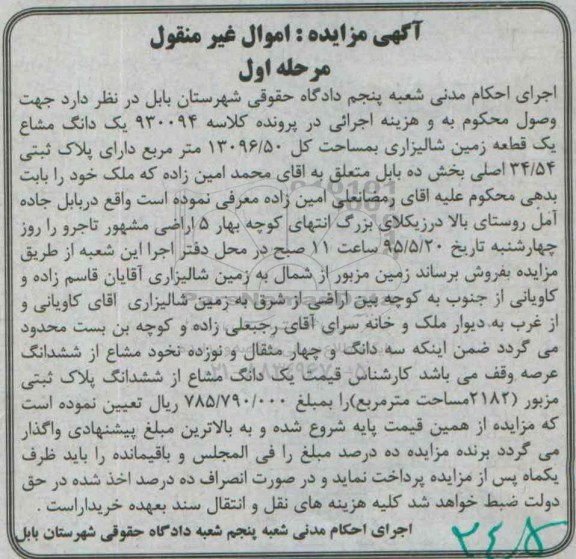 آگهی مزایده : اموال غیر منقول
مرحله اول
اجرای احکام مدنی شعبه پنجم دادگاه حقوقی شهرستان بابل در نظر دارد جهت
وصول محکوم به و هزینه اجرائی در پرونده کلاسه ۹۳۰۰۹۴ یک دانگ مشاع
یک قطعه زمین شالیزاری بمساحت کل ۱۳۰۹۶/۵۰ متر مربع دارای پلاک ثبتی
۳۴/۵۴ اصلی بخش ده بابل متعلق به اقای محمد امین زاده که ملک خود را بابت
بدهی محکوم علیه اقای رمضانعلی امین زاده معرفی نموده است واقع دربابل جاده
آمل روستای بالا درزیکلای بزرگ انتهای کوچه بهار ۵ اراضی مشهور تاجرو را روز
چهارشنبه تاریخ ۹۵/۵/۲۰ ساعت ۱۱ صبح در محل دفتر اجرا این شعبه از طریق
مزایده بفروش برساند زمین مزبور از شمال به زمین شالیزاری آقایان قاسم زاده و
کاویانی از جنوب به کوچه بین اراضی از شرق به زمین شالیزاری اقای کاویانی و
از غرب به دیوار ملک و خانه سرای آقای رجبعلی زاده و کوچه بن بست محدود
می گردد ضمن اینکه سه دانگ و چهار مثقال و نوزده نخود مشاع از ششدانگ
عرصه وقف می باشد کارشناس قیمت یک دانگ مشاع از ششدانگ پلاک ثبتی
مزبور (۲۱۸۲مساحت مترمربع)را بمبلغ ۷۸۵/۷۹۰/۰۰۰ ریال تعیین نموده است
که مزایده از همین قیمت پایه شروع شده و به بالاترین مبلغ پیشنهادی واگذار
می گردد برنده مزایده ده درصد مبلغ را فی المجلس و باقیمانده را باید ظرف
یکماه پس از مزایده پرداخت نماید و در صورت انصراف ده درصد اخذ شده در حق
دولت ضبط خواهد شد کلیه هزینه های نقل و انتقال سند بعهده خریداراست .
اجرای احکام مدنی شعبه پنجم شعبه دادگاه حقوقی شهرستان بابل